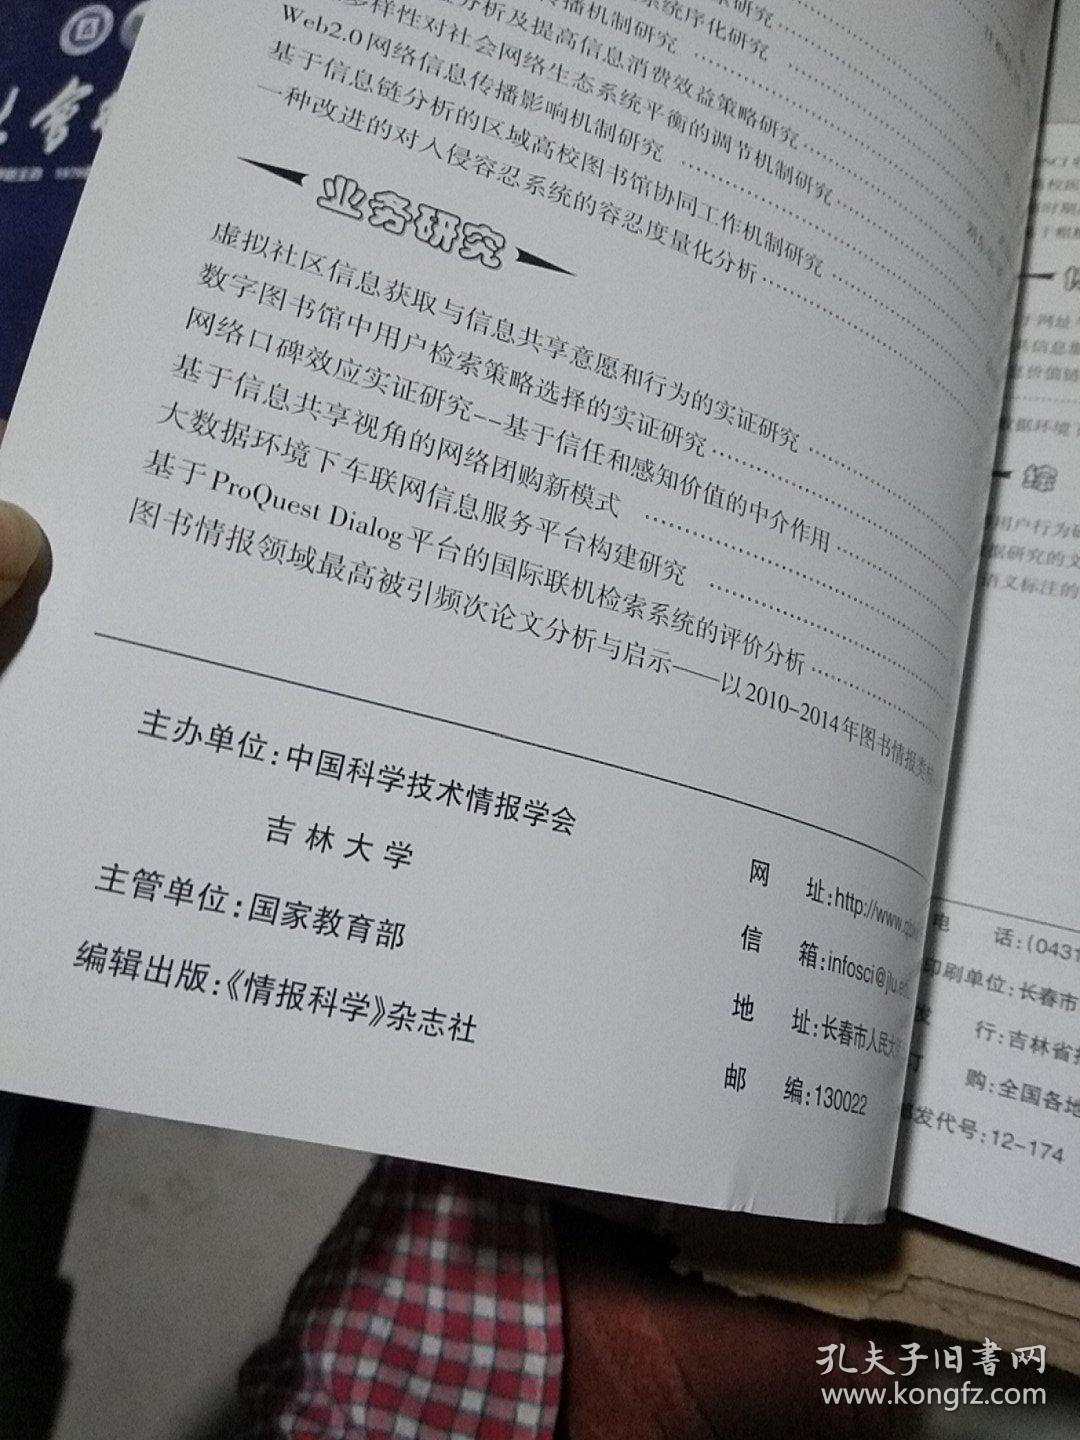 系统序化研究
传播机制研究
分析及提高信息消费效益策略研究
多样性对社会网络生态系统平衡的调节机制研究
Web2.0网络信息传播影响机制研究
基于信息链分析的区域高校图书馆协同工作机制研究
一种改进的对入侵容忍系统的容忍度量化分析
业务研究
虚拟社区信息获取与信息共享意愿和行为的实证研究
数字图书馆中用户检索策略选择的实证研究
网络口碑效应实证研究--基于信任和感知价值的中介作用
基于信息共享视角的网络团购新模式
大数据环境下车联网信息服务平台构建研究
基于ProQuest Dialog平台的国际联机检索系统的评价分析
图书情报领域最高被引频次论文分析与启示——以2010-2014年图书情报类
主办单位:中国科学技术情报学会
吉林大学
主管单位:国家教育部
编辑出版:《情报科学》杂志社
网 址:http://www.
信 箱:infosci@jlu.ed
地 址:长春市人民大
邮 编:130022
电 话:(0431
印刷单位:长春市
发 行:吉林省
订 购:全国各地
邮发代号:12-174
网址
信息服
价值链
数据环境下
综
用户行为研
据研究的文
语义标注的
孔夫子旧書网
www.kongfz.com